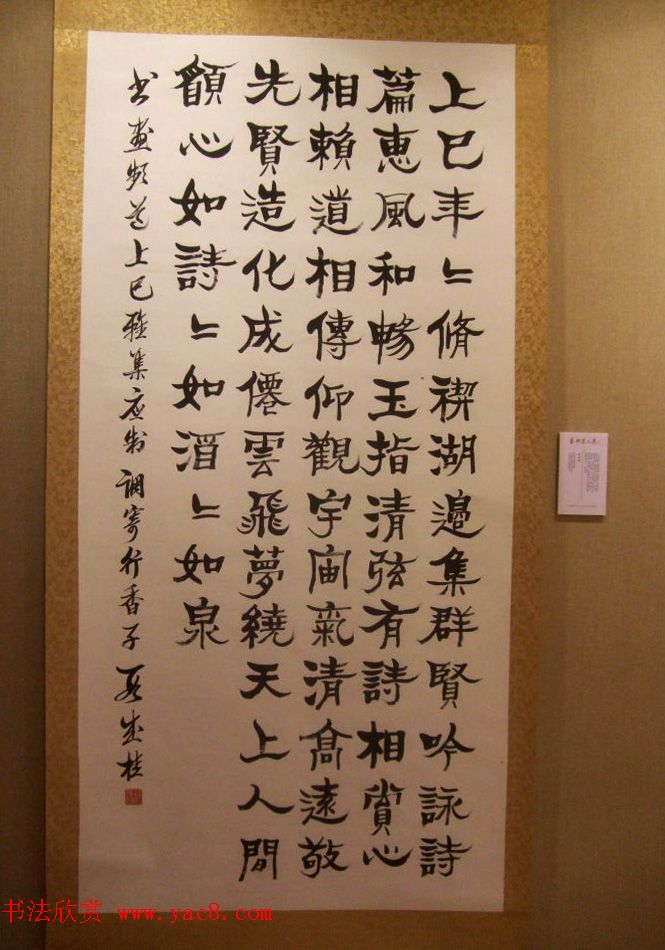 上巳年〻脩禊湖邊集群賢吟詠詩
篇惠風和暢玉指清弦有詩相賞心
相賴道相傳仰觀宇宙氣清高遠敬
先賢造化成僊雲飛夢繞天上人間
願心如詩〻如酒〻如泉
书畫頻道上巳雅集应制調寄行香子段成桂
书法欣赏 www.yac8.com